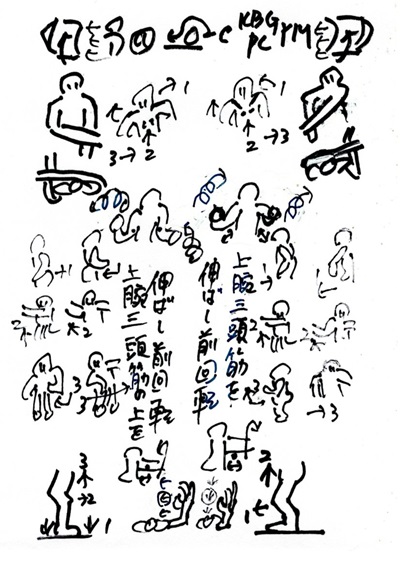 KBG
PC PM
1
2
3→
1
2
→3
上腕三頭筋を
伸ばし前回転
伸ばし前回転
上腕三頭筋の上を
→1
2
2
3
3
1
2
2
3
→3
3
→2
1
2
1